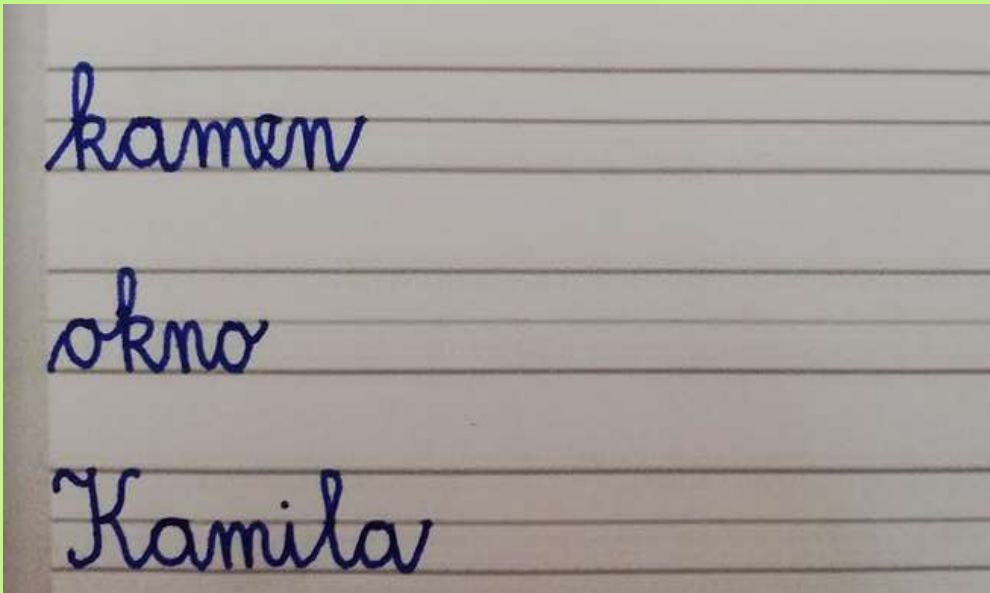 kamen
okno
Kamila